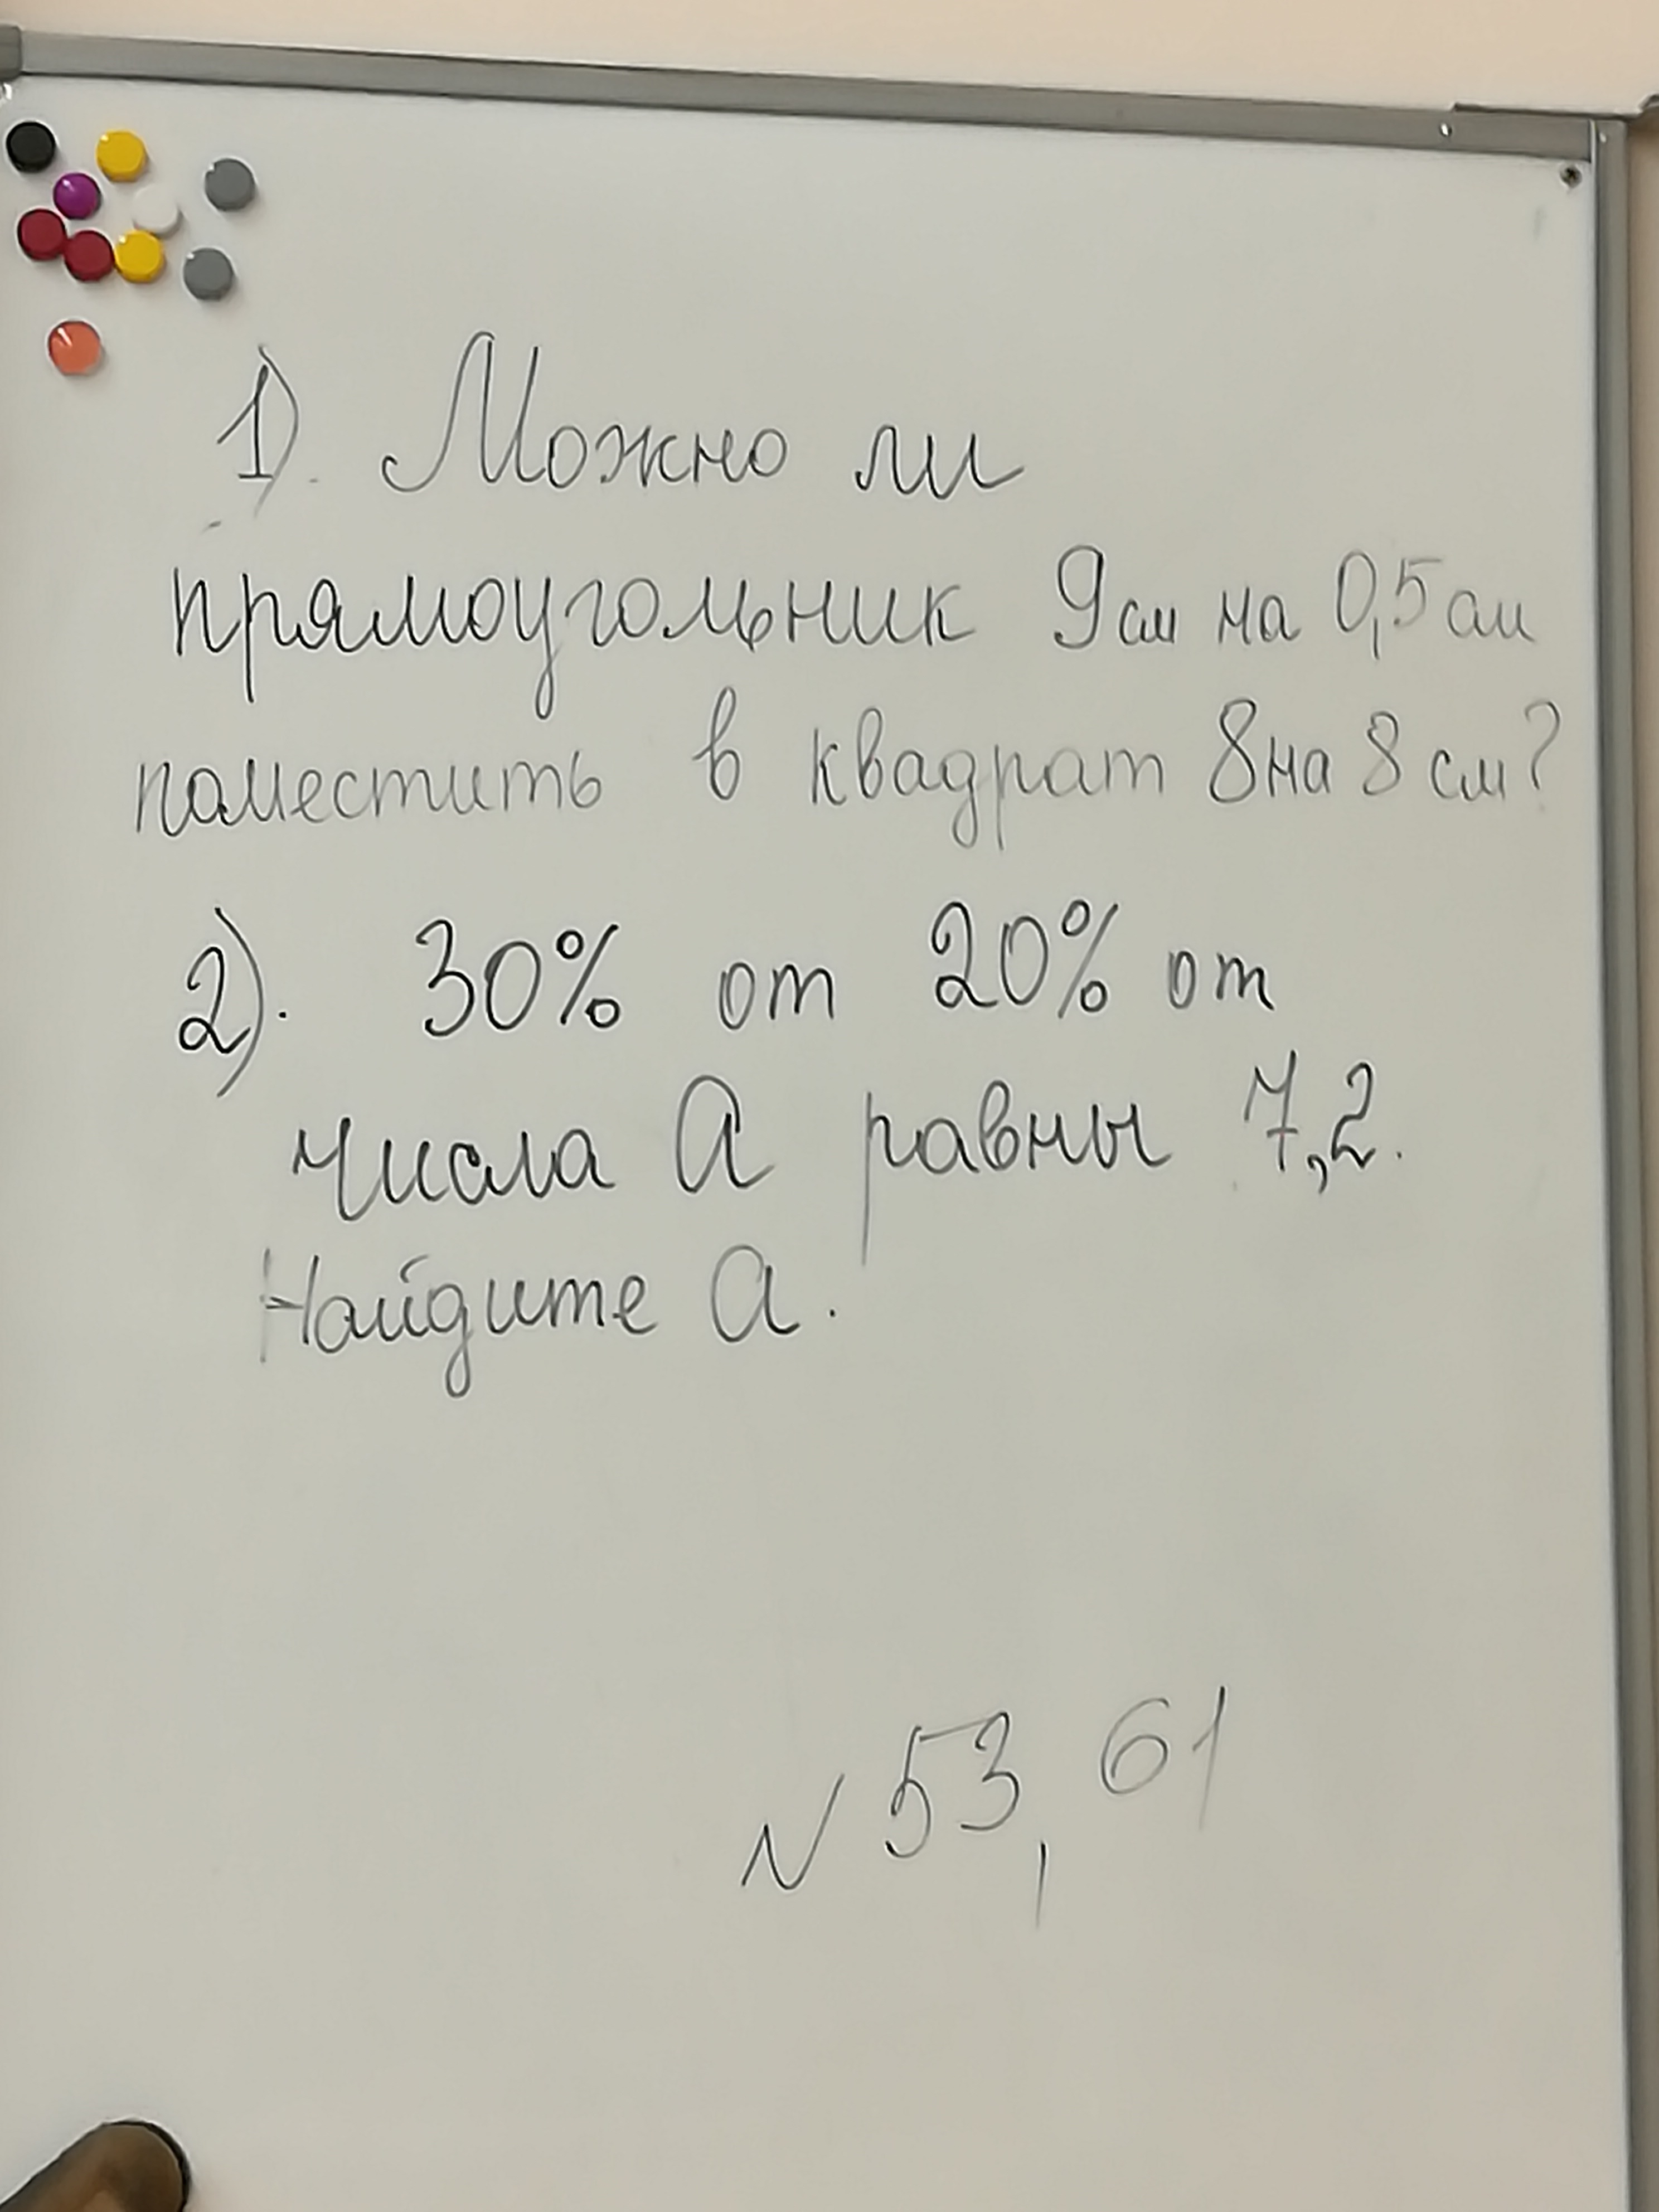 1). Можно ли
прямоугольник 9см на 0,5см
поместить в квадрат 8на 8 см?
2). 30% от 20% от
числа а равны 7,2.
Найдите а.
N 53, 61